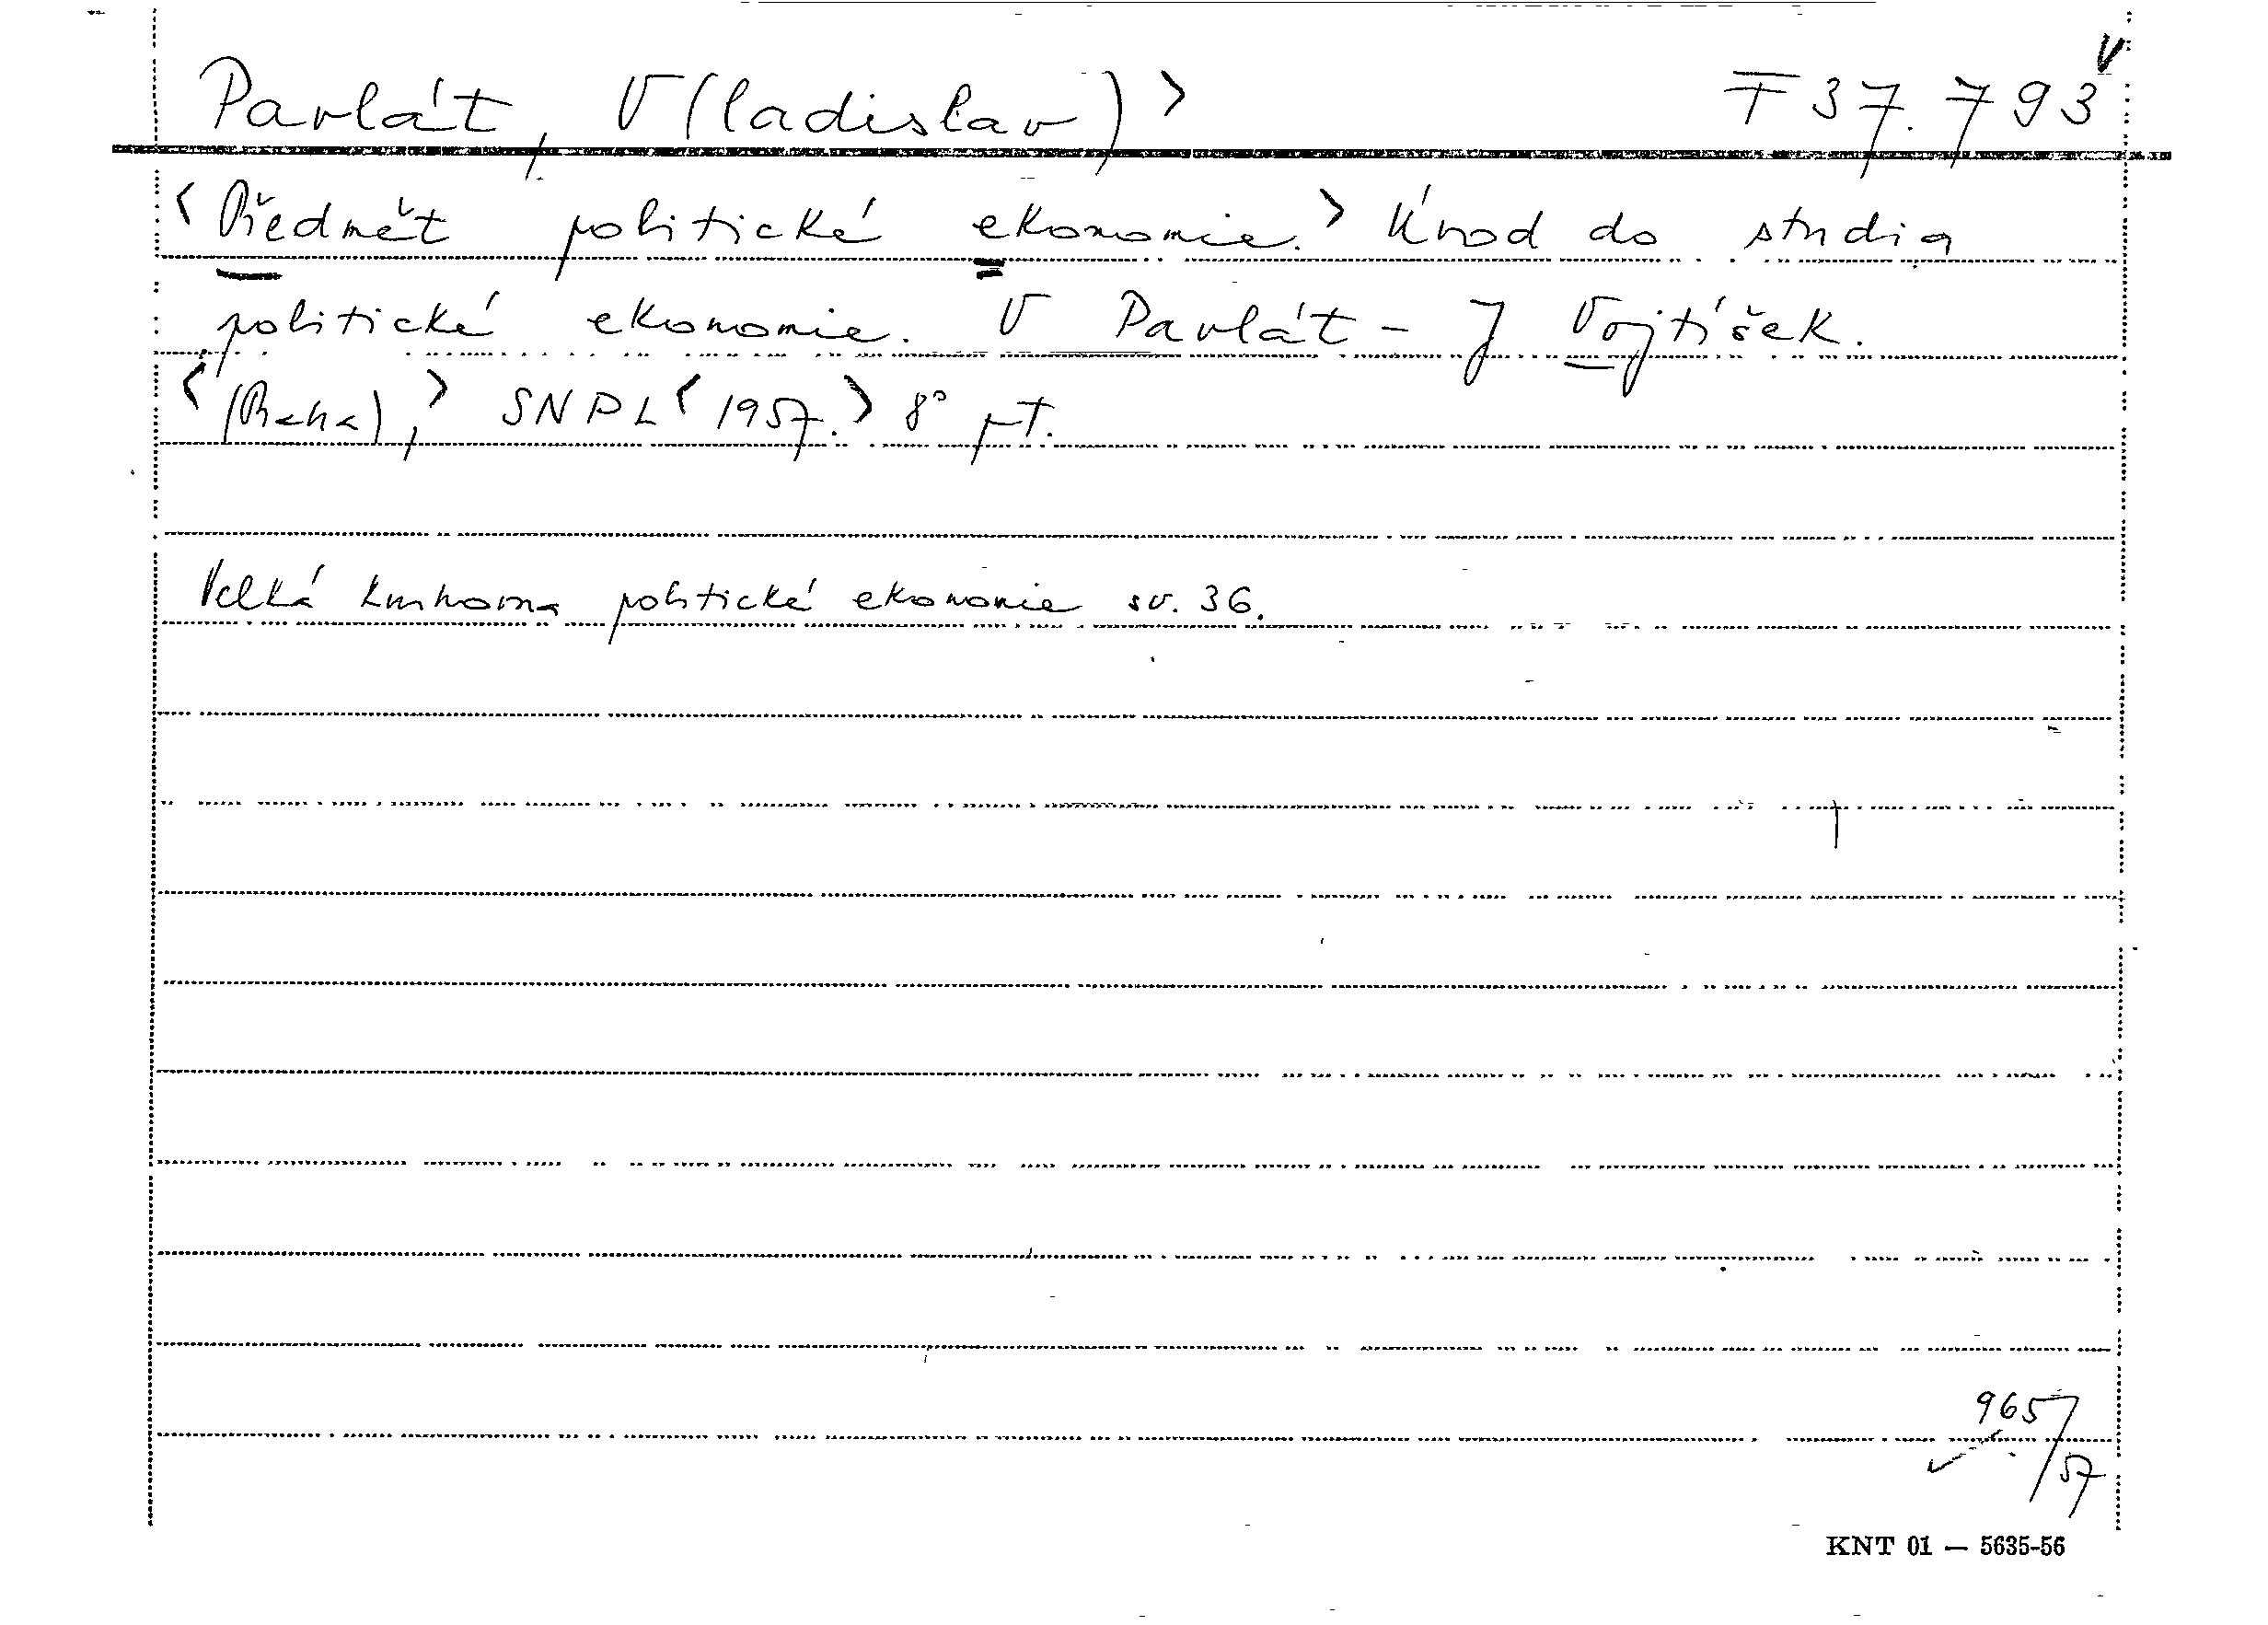 Pavlát, V(ladislav) > F 37.793
< Předmět politické ekonomie. > Úvod do studia
politické ekonomie. V Pavlát - J Vojtíšek.
< (Praha), > SNPL < 1957. > 8° pt.
Velká knihovna politické ekonomie sv. 36.
965/57
KNT 01 — 5635-56